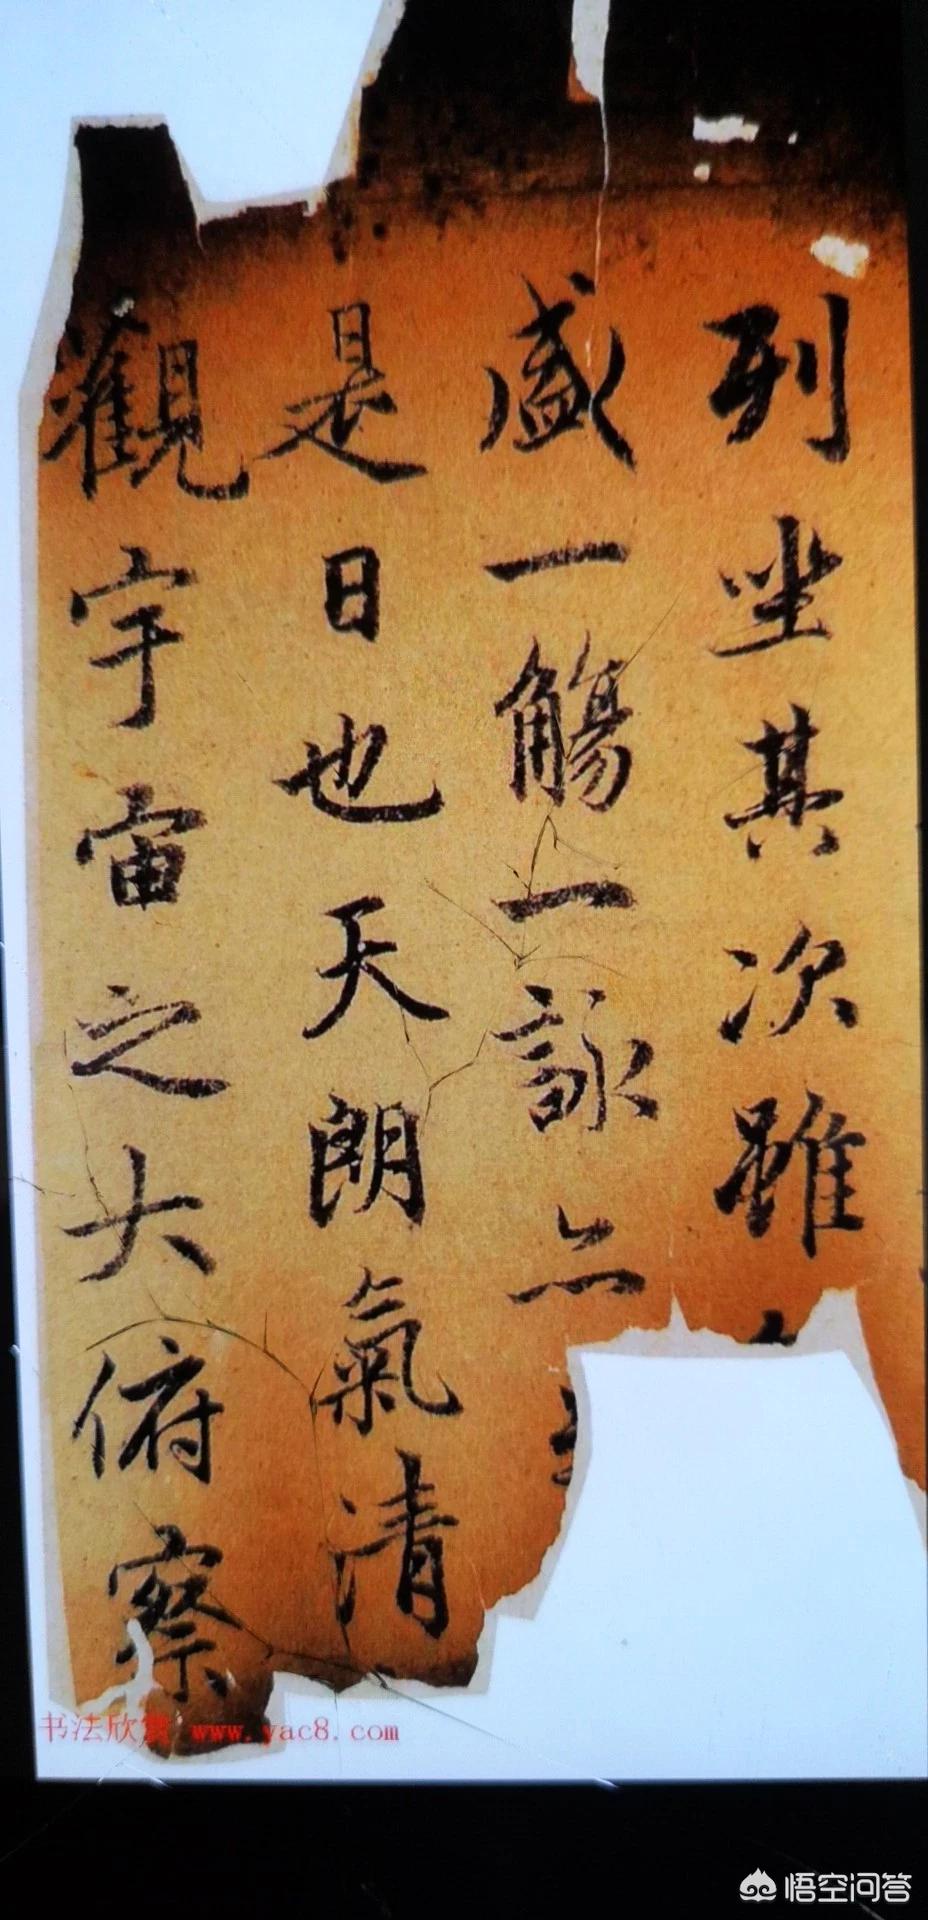 列坐其次雖
盛一觴一詠亦
是日也天朗氣清
觀宇宙之大俯察
书法欣赏 www.yac8.com
悟空问答